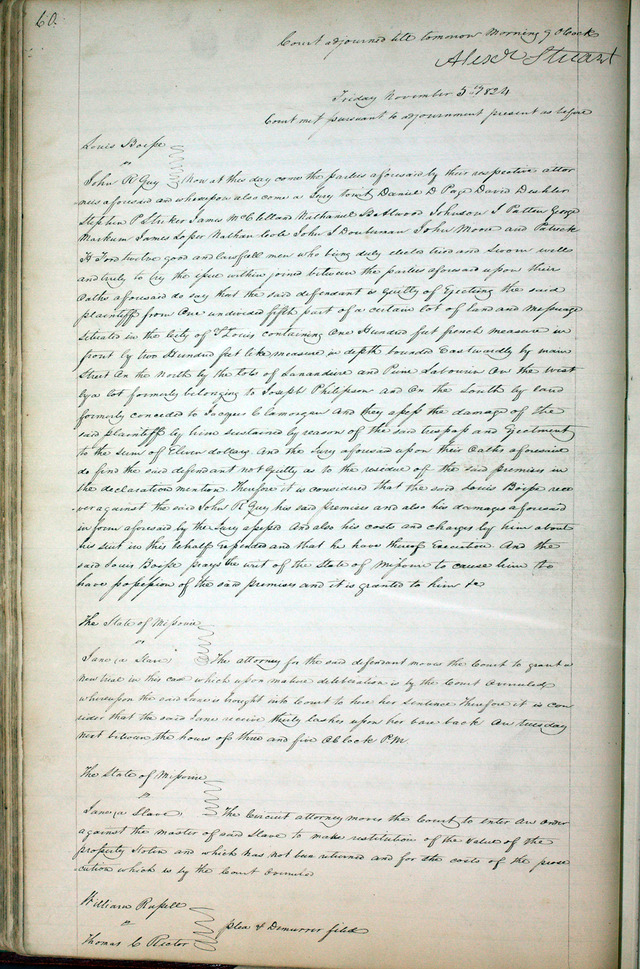 60.
Court adjourned till tomorrow Morning 9 OClock
Alexr Stuart
Friday November 5th 1824
Court met pursuant to adjournment present as before
Louis Boisse
vs
John R Guy Now at this day come the parties aforesaid by their respective attor
nies aforesaid and whereupon also come a Jury towit Daniel D Page David Deshler
Stephen P Striker James McClelland Nathaniel Johnson J Patten George
Markum James Loper Nathan Cole John J Douberman John Moore and Patrick
H Ford twelve good and lawfull men who being duly elected tried and Sworn well
and truly to try the issue within joined between the parties aforesaid upon their
Oaths aforesaid do say that the said defendant is guilty of Ejecting the said
plaintiff from One undivided fifth part of a certain lot of land and Messuage
situated in the City of St Louis containing One Hundred feet french measure in
front by two Hundred feet like measure in depth bounded Eastwardly by main
Street On the North by the lots of and On the West
by a lot formerly belonging to Joseph Philipson and On the South by land
formerly conceded to Jacques Clamorgan And they assess the damage of the
said plaintiff by him sustained by reason of the said trespass and Ejectment
to the sum of Eleven dollars. And the Jury aforesaid upon their Oaths aforesaid
do find the said defendant not Guilty as to the residue of the said premises in
the declaration mention Therefore it is considered that the said Louis Boisse reco
ver against the said John R Guy his said premises and also his damages aforesaid
in form aforesaid by the Jury assessed And also his costs and charges by him about
his suit in this behalf expended and that he have thereof Execution And the
said Louis Boisse prays the writ of the State of Missouri to cause him to
have possession of the said premises and it is granted to him &c
The State of Missouri
vs
Jane (a Slave) The attorney for the said defendant moves the Court to grant a
new trial in this case which upon mature deliberation is by the Court overruled
whereupon the said Jane is brought into Court to here her sentence Therefore it is con
sider that the said Jane receive thirty lashes upon her bare back on tuesday
next between the hours of three and five OClock P.M.
The State of Missouri
vs
Jane (a Slave The Circuit attorney moves the Court to enter an order
against the master of said Slave to make restitution of the value of the
property stolen and which has not been returned and for the costs of the prose
cution which is by the Court Overruled
William Russell
vs plea & Demurrer filed
Thomas C Rector